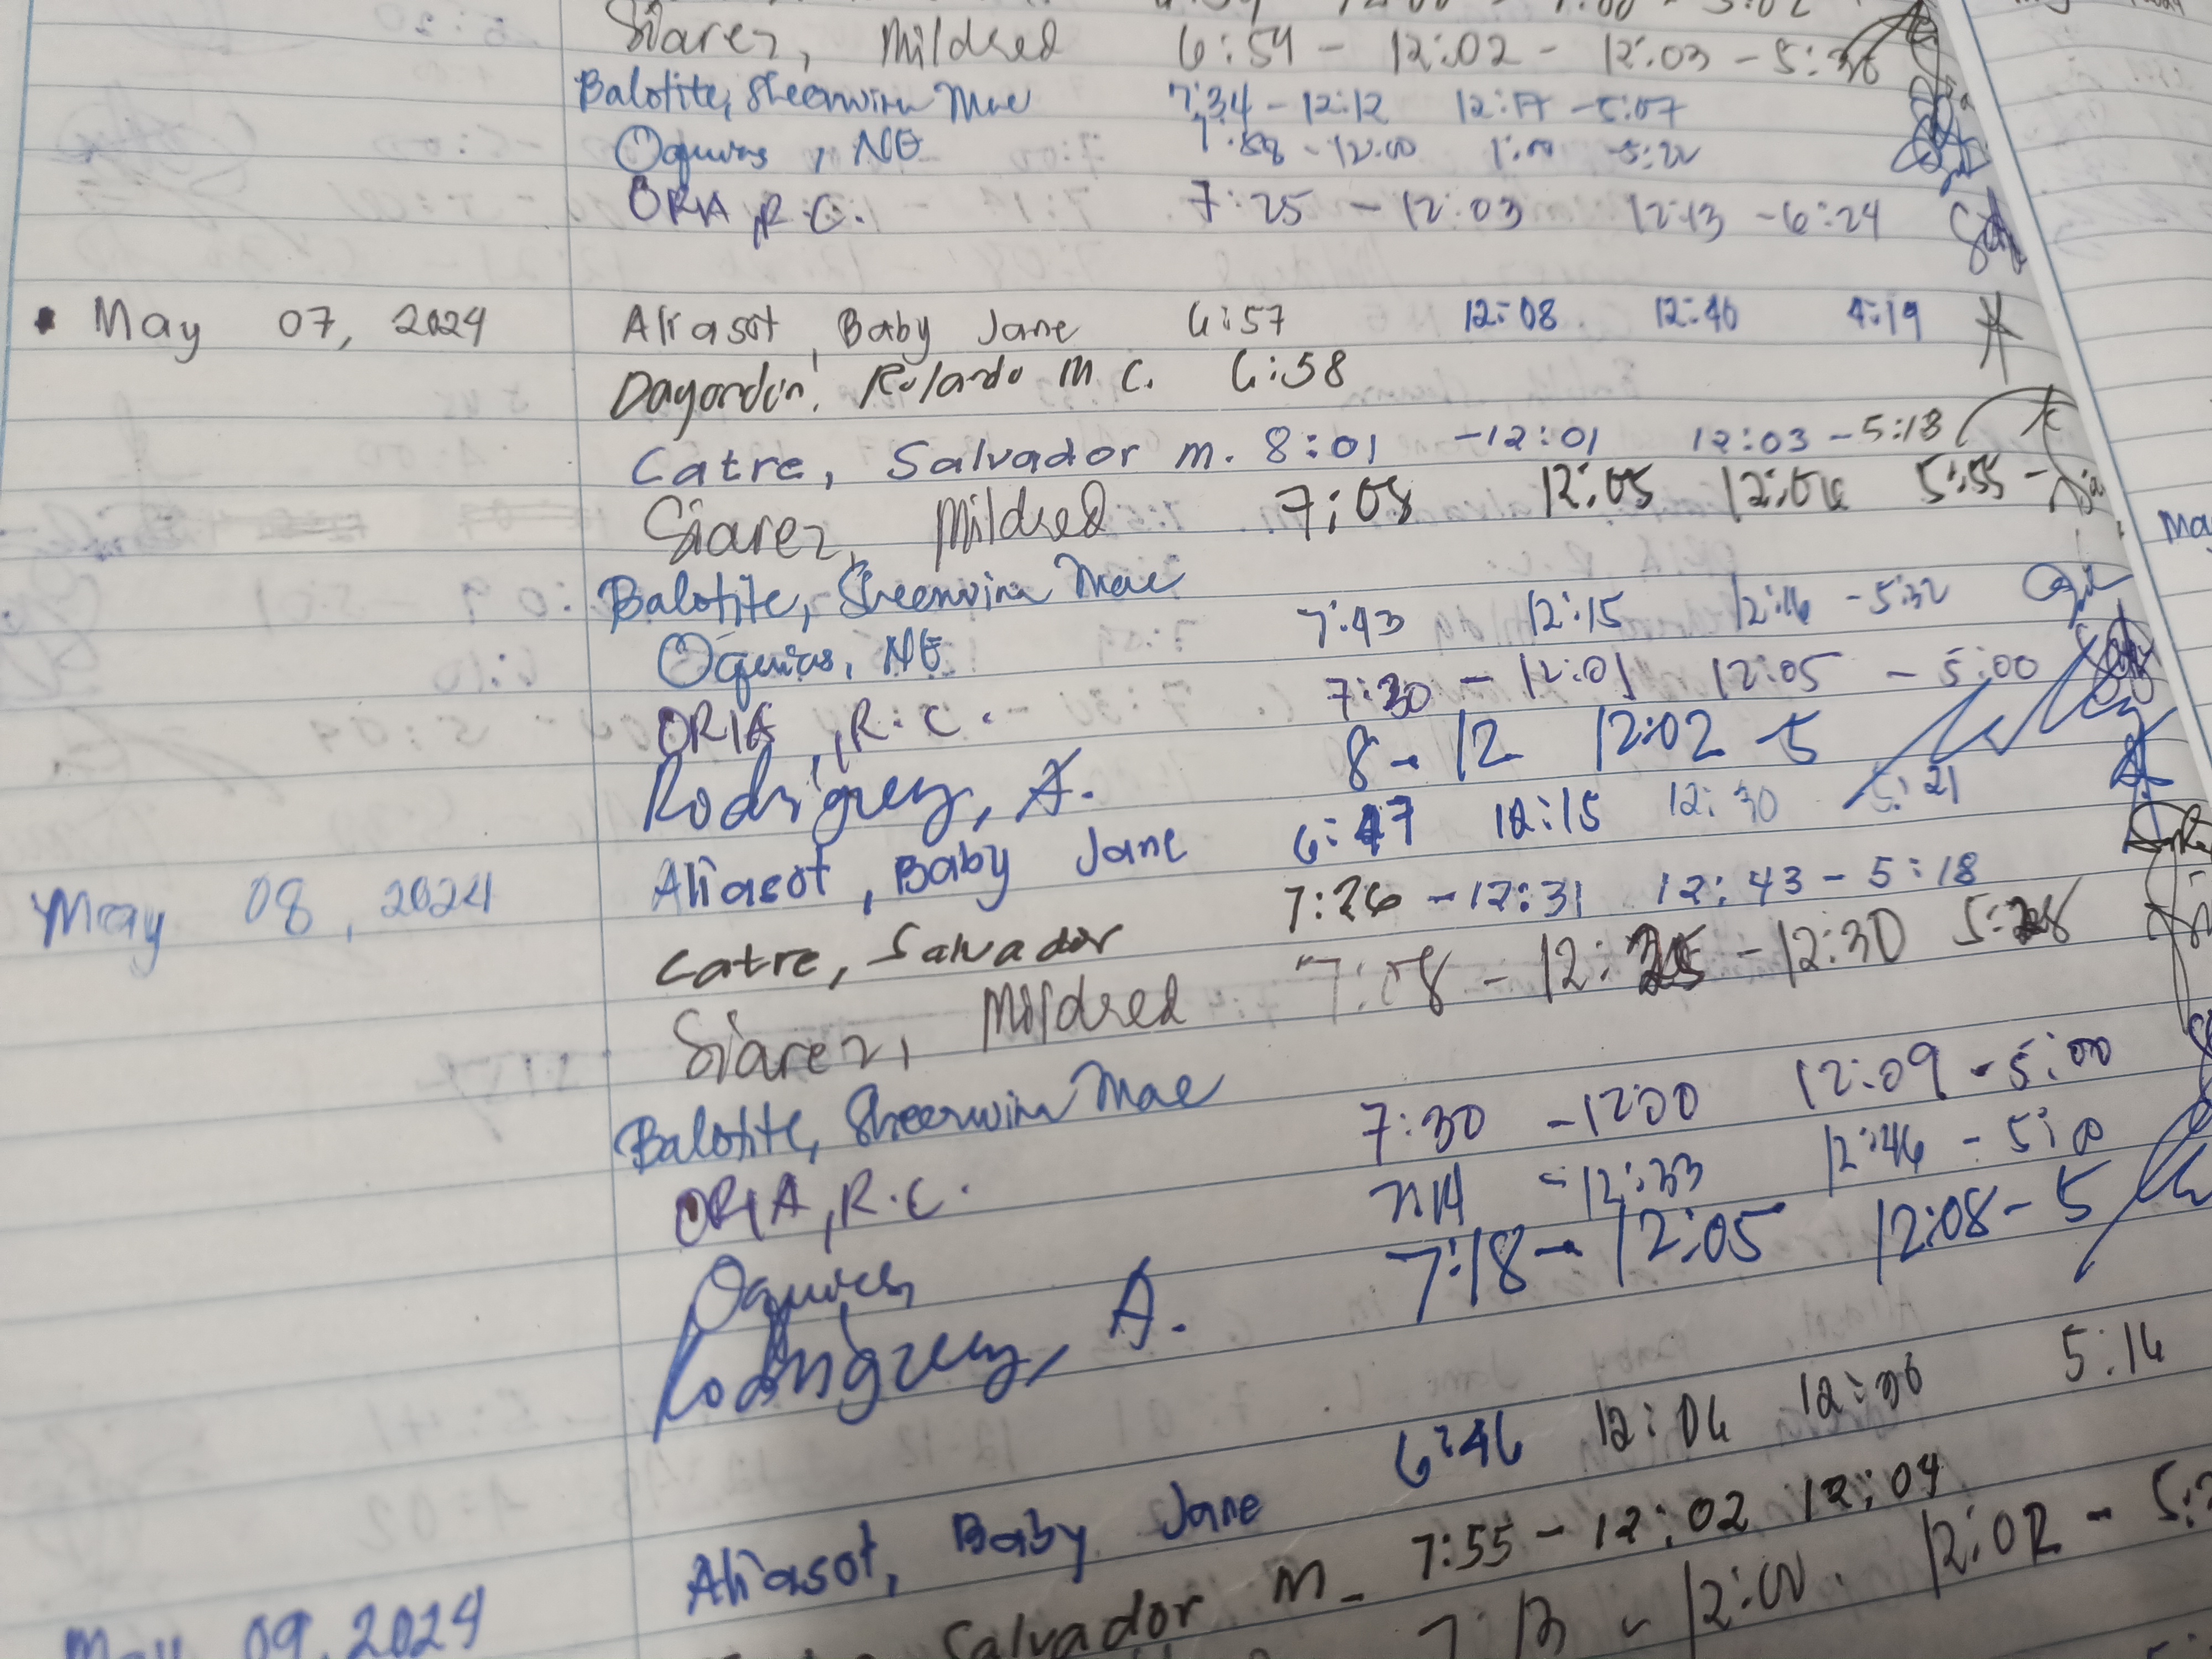 Siarez, Mildred 6:59 - 12:02 - 12:03 - 5:36
Balotite, Sheenwinn Mae 7:34 - 12:12 12:17 - 5:07
Oquias, NE 7:58 - 12:00 1:00 5:20
ORIA, R.C. 7:25 - 12:03 12:13 - 6:24
May 07, 2024 Aliasot, Baby Jane 6:57 12:08 12:40 4:19
Rolando M C. 6:58
Catre, Salvador m. 8:01 - 12:01 12:03 - 5:13
Siarez, Mildred 7:08 12:05 12:06 5:55 -
Balotite, Sheenwinn Mae
Oquias, NE 7:43 12:15 12:16 - 5:32
ORIA, R.C. 7:30 - 12:01 12:05 - 5:00
Rodriguez, A. 8 - 12 12:02 - 5
May 08, 2024 Aliasot, Baby Jane 6:47 12:15 12:30 5:21
Catre, Salvador 7:26 - 12:31 12:43 - 5:18
Siarez, Mildred 7:08 - 12:25 - 12:30 5:28
Balotite, Sheenwinn Mae
ORIA, R.C. 7:30 - 12:00 12:09 - 5:00
Oquias, - 12:33 12:46 -
Rodriguez, A. 7:18 - 12:05 12:08 - 5
May 09, 2024 Aliasot, Baby Jane 6:46 12:06 5:16
Salvador m - 7:55 - 12:02 12:04
7:13 - 12:00 12:02 -